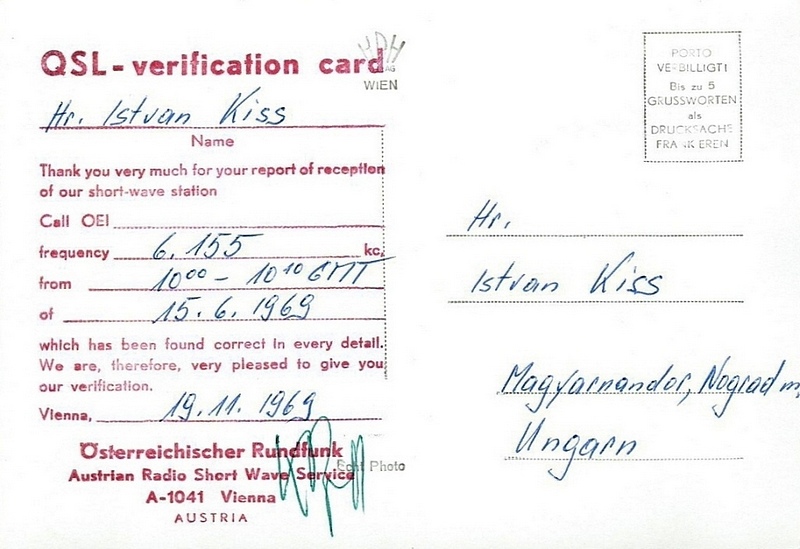 QSL-verification card
HDH
AG
WIEN
Hr. Istvan Kiss
Name
Thank you very much for your report of reception
of our short-wave station
Call OEI
frequency 6.155 kc,
from 10⁰⁰ - 10¹⁰ GMT
of 15.6.1969
which has been found correct in every detail.
We are, therefore, very pleased to give you
our verification.
Vienna, 19.11.1969
Österreichischer Rundfunk
Austrian Radio Short Wave Service
Echt Photo
A-1041 Vienna
AUSTRIA
PORTO
VERBILLIGT!
Bis zu 5
GRUSSWORTEN
als
DRUCKSACHE
FRANKIEREN
Hr.
Istvan Kiss
Magyarnandor, Nograd m.
Ungarn